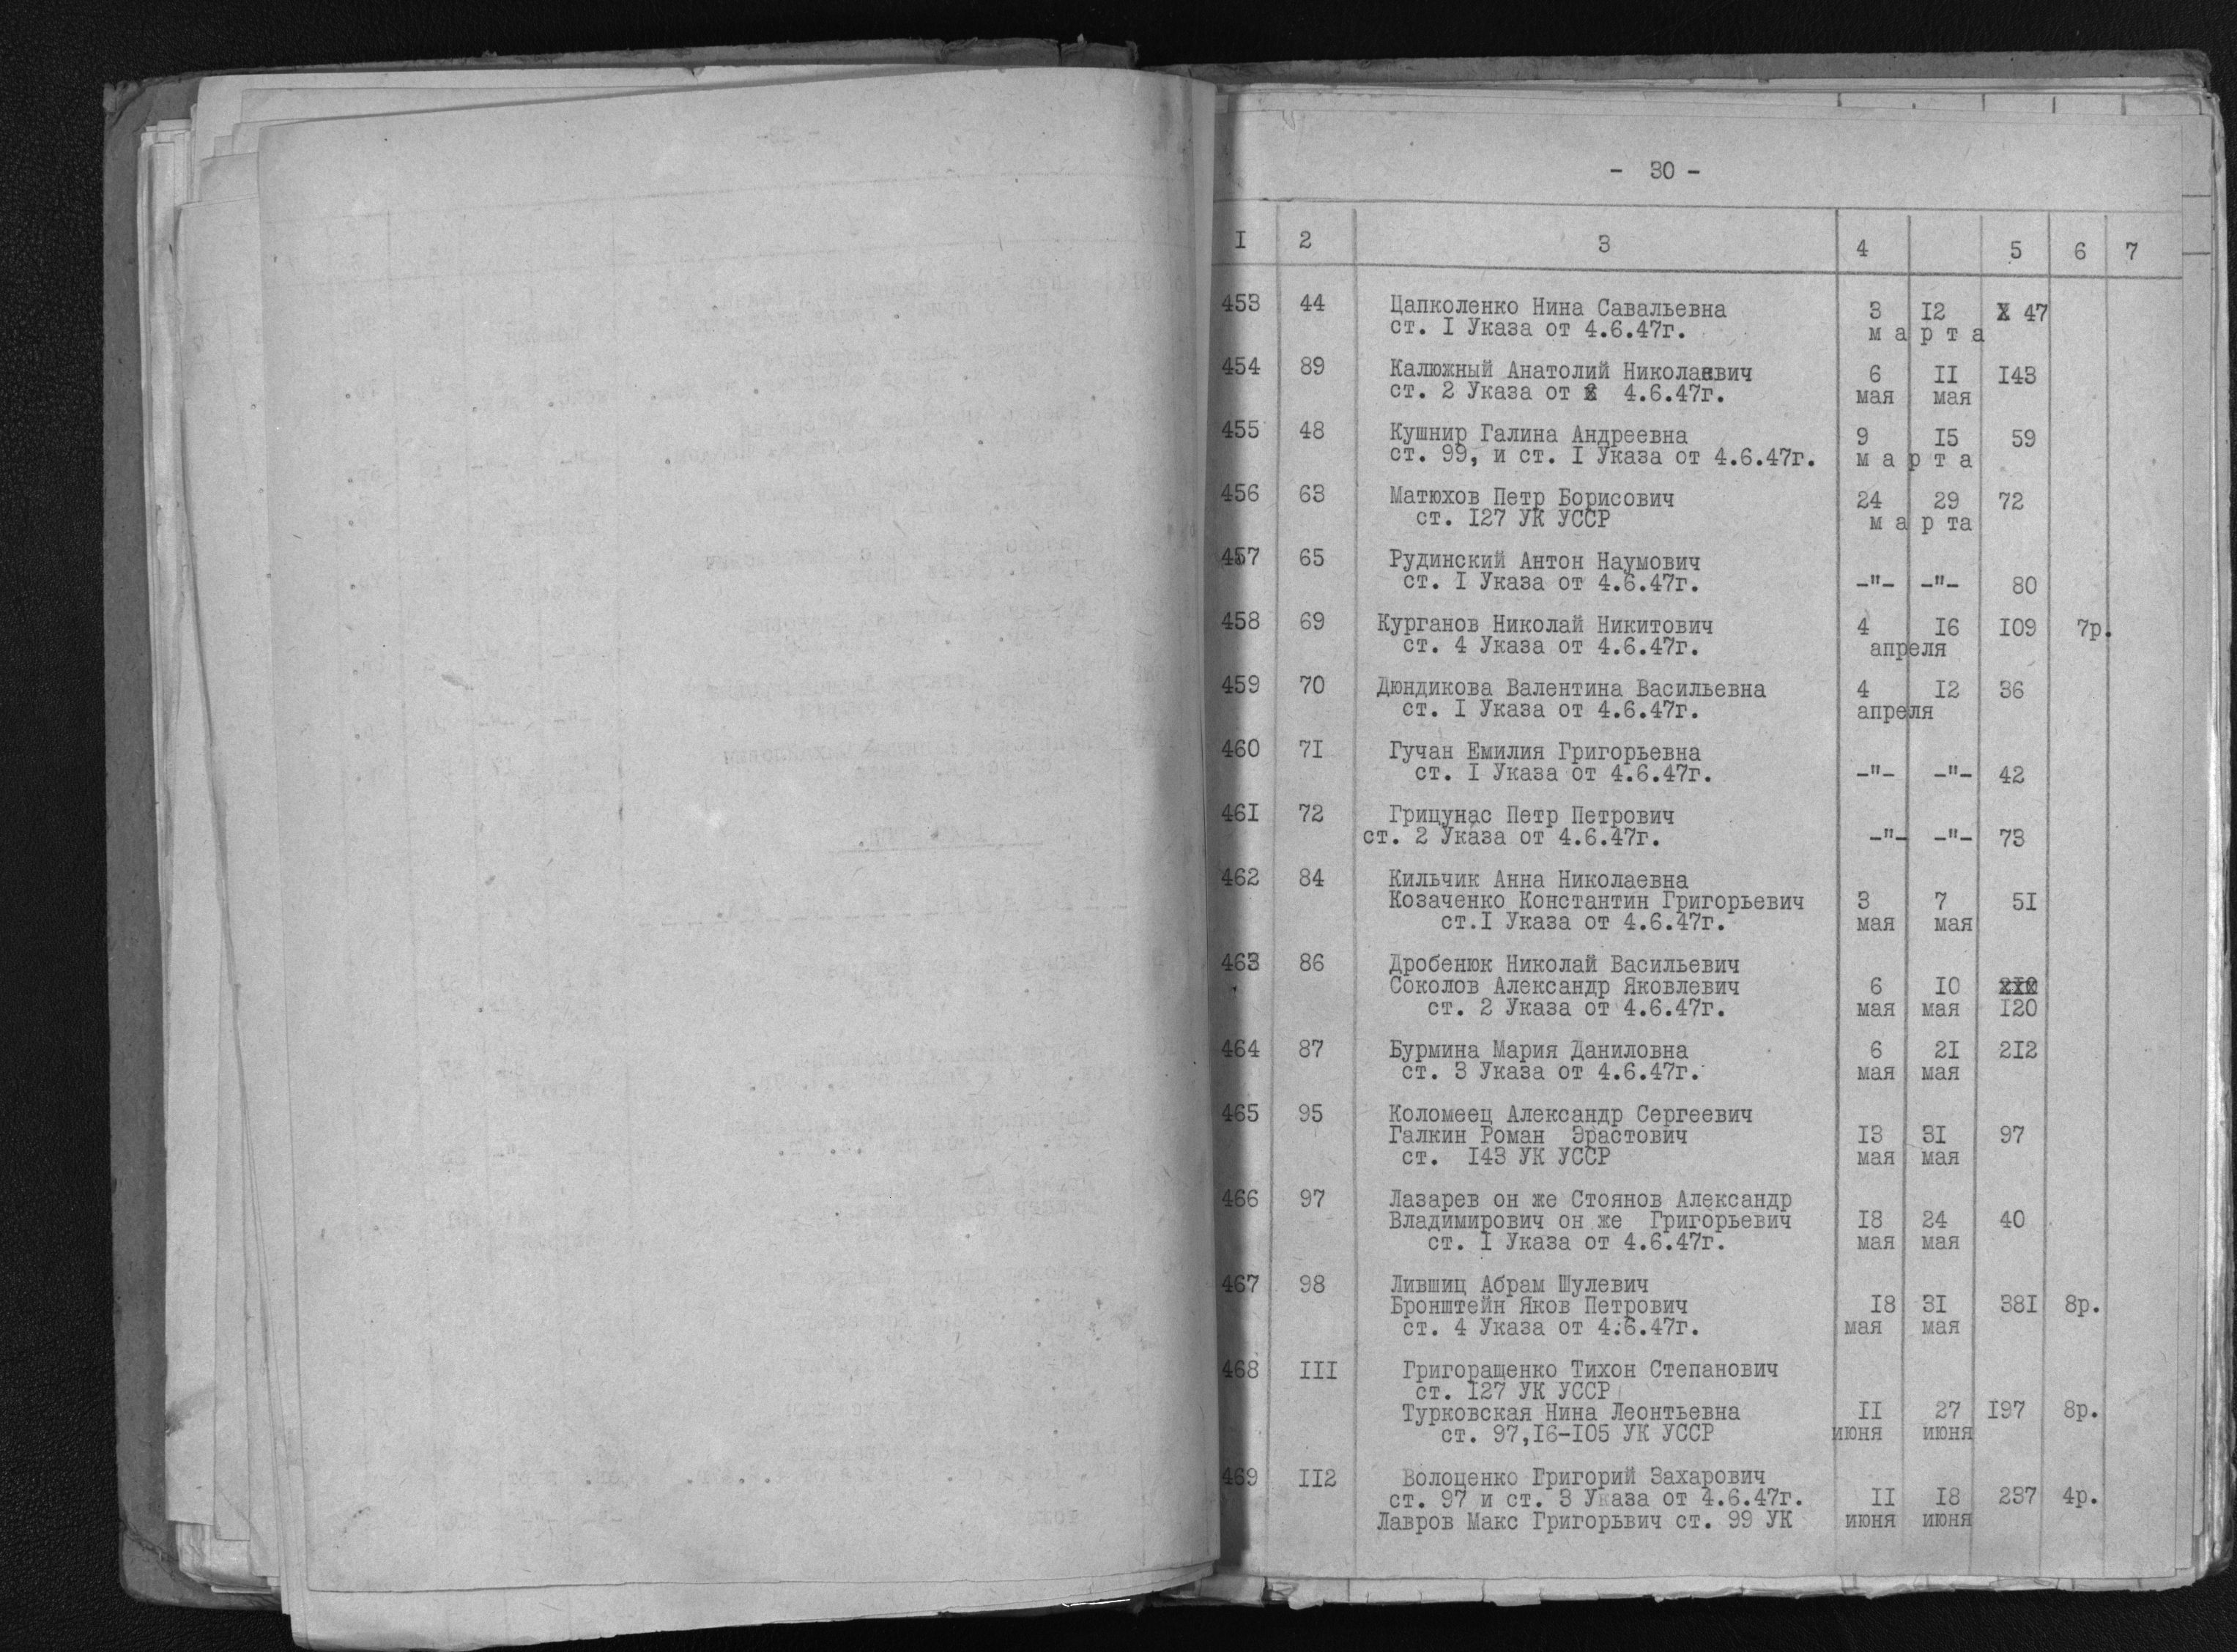 - 30 -
I 2 3 4 5 6 7
453 44 Цапколенко Нина Савальевна 3 I2 47
ст. I Указа от 4.6.47г. м а р т а
454 89 Калюжный Анатолий Николаевич 6 II I43
ст. 2 Указа от 4.6.47г. мая мая
455 48 Кушнир Галина Андреевна 9 I5 59
ст. 99, и ст. I Указа от 4.6.47г. м а р т а
456 63 Матюхов Петр Борисович 24 29 72
ст. I27 УК УССР м а р та
457 65 Рудинский Антон Наумович
ст. I Указа от 4.6.47г. -"- -"- 80
458 69 Курганов Николай Никитович 4 I6 I09 7р.
ст. 4 Указа от 4.6.47г. апреля
459 70 Дюндикова Валентина Васильевна 4 I2 36
ст. I Указа от 4.6.47г. апреля
460 7I Гучан Емилия Григорьевна
ст. I Указа от 4.6.47г. -"- -"- 42
46I 72 Грицунас Петр Петрович
ст. 2 Указа от 4.6.47г. -"- -"- 73
462 84 Кильчик Анна Николаевна
Козаченко Константин Григорьевич 3 7 5I
ст.I Указа от 4.6.47г. мая мая
463 86 Дробенюк Николай Васильевич
Соколов Александр Яковлевич 6 I0
ст. 2 Указа от 4.6.47г. мая мая I20
464 87 Бурмина Мария Даниловна 6 2I 2I2
ст. 3 Указа от 4.6.47г. мая мая
465 95 Коломеец Александр Сергеевич
Галкин Роман Эрастович I3 3I 97
ст. I43 УК УССР мая мая
466 97 Лазарев он же Стоянов Александр
Владимирович он же Григорьевич I8 24 40
ст. I Указа от 4.6.47г. мая мая
467 98 Лившиц Абрам Шулевич
Бронштейн Яков Петрович I8 3I 38I 8р.
ст. 4 Указа от 4.6.47г. мая мая
468 III Григоращенко Тихон Степанович
ст. I27 УК УССР
Турковская Нина Леонтьевна II 27 I97 8р.
ст. 97,I6-I05 УК УССР июня июня
469 II2 Волоценко Григорий Захарович
ст. 97 и ст. 3 Указа от 4.6.47г. II I8 237 4р.
Лавров Макс Григорьвич ст. 99 УК июня июня